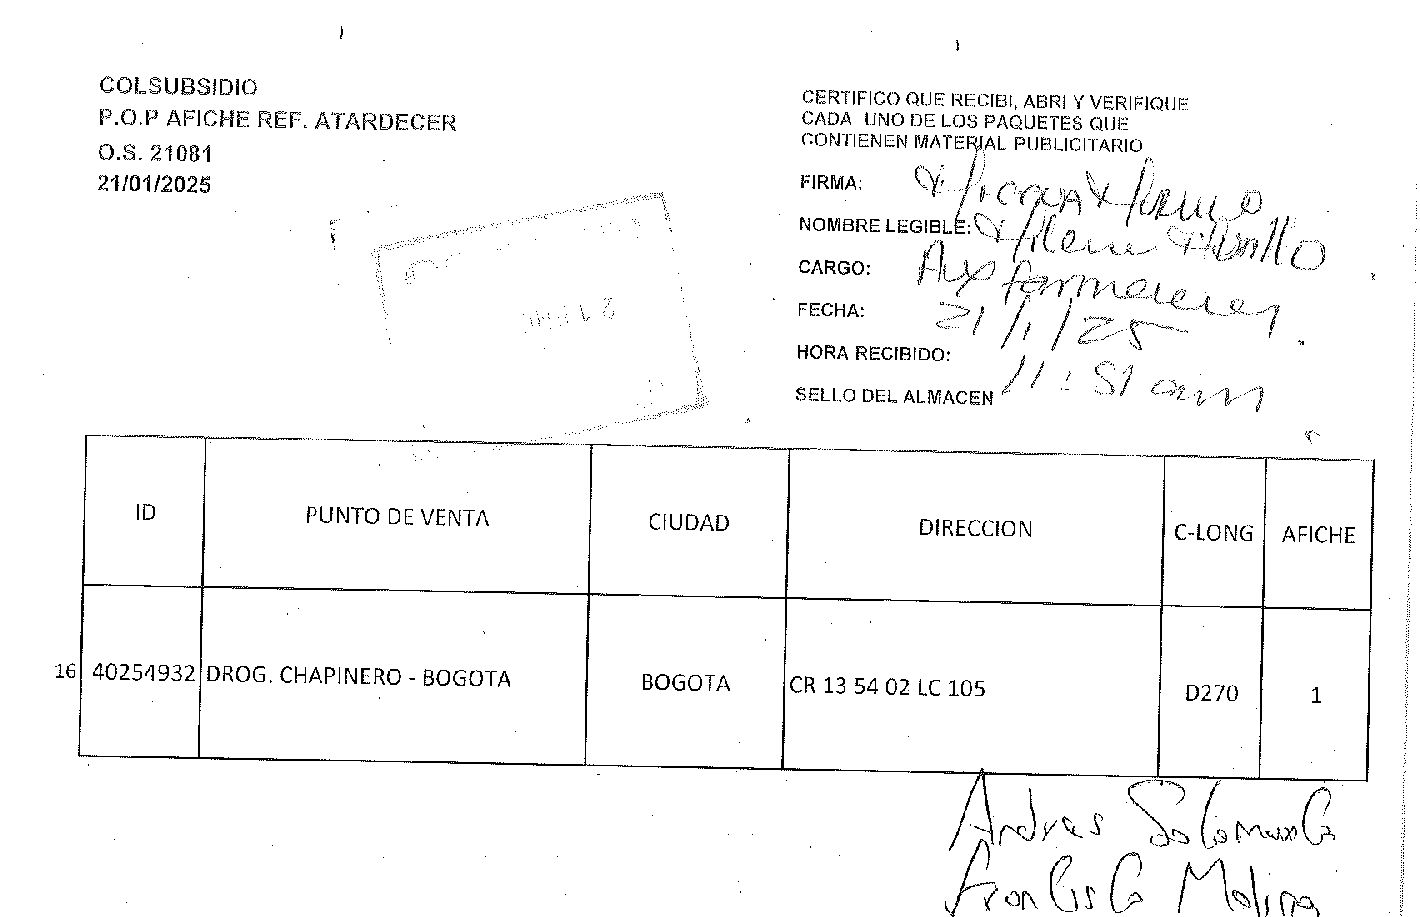 COLSUBSIDIO
P.O.P AFICHE REF. ATARDECER
O.S. 21081
21/01/2025
CERTIFICO QUE RECIBI, ABRI Y VERIFIQUE
CADA UNO DE LOS PAQUETES QUE
CONTIENEN MATERIAL PUBLICITARIO
FIRMA:
NOMBRE LEGIBLE:
CARGO: Aux farmacia
FECHA: 21/1/25
HORA RECIBIDO: 11:51 am
SELLO DEL ALMACEN
ID PUNTO DE VENTA CIUDAD DIRECCION C-LONG AFICHE
16 40254932 DROG. CHAPINERO - BOGOTA BOGOTA CR 13 54 02 LC 105 D270 1
Andres Salamanca
Francisco Molina